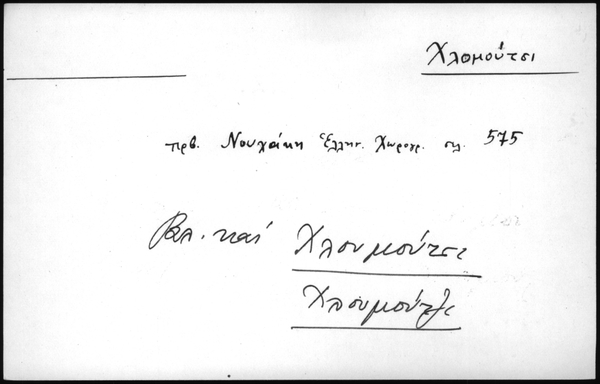 Χλομούτσι
πρβ. Νουχάκη Ἑλλην. Χωρογρ. σελ. 575
Βλ. καί Χλουμούτσι
Χλουμούτζι